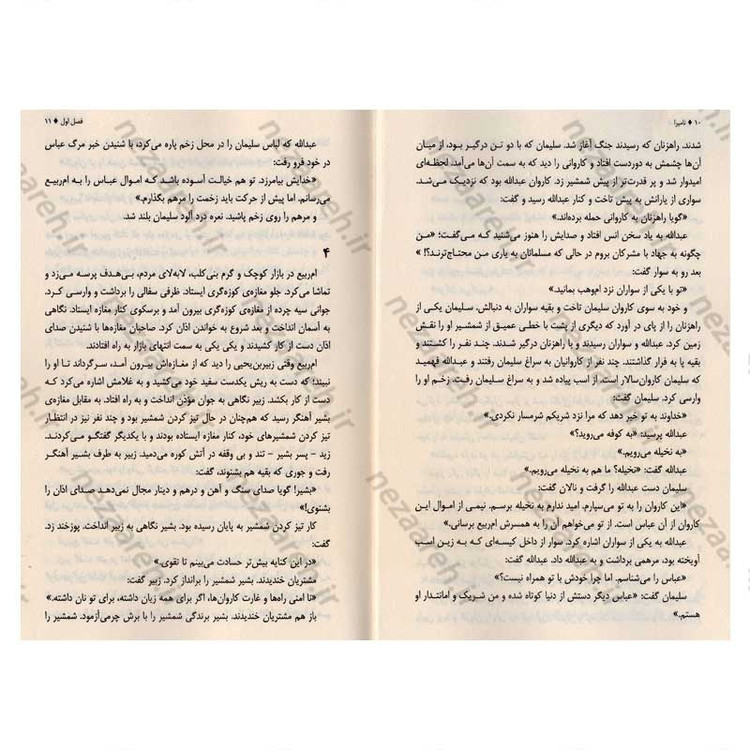 ۱۰ ♦ نامیرا
شدند. راهزنان که رسیدند جنگ آغاز شد. سلیمان که با دو تن درگیر بود، از میان
آن‌ها چشمش به دوردست افتاد و کاروانی را دید که به سمت آن‌ها می‌آمد. لحظه‌ای
امیدوار شد و پر قدرت‌تر از پیش شمشیر زد. کاروان عبدالله بود که نزدیک می‌شد.
سواری از یارانش به پیش تاخت و کنار عبدالله رسید و گفت:
«گویا راهزنان به کاروانی حمله برده‌اند.»
عبدالله به یاد سخن انس افتاد و صدایش را هنوز می‌شنید که می‌گفت؛ «من
چگونه به جهاد با مشرکان بروم در حالی که مسلمانان به یاری من محتاج‌ترند؟! »
بعد رو به سوار گفت:
«تو با یکی از سواران نزد ام‌وهب بمانید.»
و خود به سوی کاروان سلیمان تاخت و بقیه سواران به دنبالش. سلیمان یکی از
راهزنان را از پای در آورد که دیگری از پشت با خطی عمیق از شمشیر او را نقش
زمین کرد. عبدالله و سواران رسیدند و با راهزنان درگیر شدند. چند نفر را کشتند و
بقیه پا به فرار گذاشتند. چند نفر از کاروانیان به سراغ سلیمان رفتند و عبدالله فهمید
که سلیمان کاروان‌سالار است. از اسب پیاده شد و به سراغ سلیمان رفت. زخم او را
وارسی کرد.
«خداوند به تو خیر دهد که مرا نزد شریکم شرمسار نکردی.»
عبدالله پرسید: «به کوفه می‌روید؟»
«به نخیله می‌رویم.»
عبدالله گفت: «نخیله؟ ما هم به نخیله می‌رویم.»
سلیمان دست عبدالله را گرفت و نالان گفت:
«این کاروان را به تو می‌سپارم. امید ندارم به نخیله برسم. نیمی از اموال این
کاروان از آن عباس است. از تو می‌خواهم آن را به همسرش ام‌ربیع برسانی.»
عبدالله به یکی از سواران اشاره کرد. سوار از داخل کیسه‌ای که به زین اسب
آویخته بود، مرهمی برداشت و به عبدالله داد. عبدالله گفت:
«عباس را می‌شناسم. اما چرا خودش با تو همراه نیست؟»
سلیمان گفت: «عباس دیگر دستش از دنیا کوتاه شده و من شریک و امانتدار او
هستم.»
فصل اول ♦ ۱۱
عبدالله که لباس سلیمان را در محل زخم پاره می‌کرد، با شنیدن خبر مرگ عباس
در خود فرو رفت:
«خدایش بیامرزد. تو هم خیالت آسوده باشد که اموال عباس را به ام‌ربیع
می‌رسانم. اما پیش از حرکت باید زخمت را مرهم بگذارم.»
و مرهم را روی زخم پاشید. نعره درد آلود سلیمان بلند شد.
۴
ام‌ربیع در بازار کوچک و گرم بنی‌کلب، لابه‌لای مردم، بی‌هدف پرسه می‌زد و
تماشا می‌کرد. جلو مغازه‌ی کوزه‌گری ایستاد. ظرفی سفالی را برداشت و وارسی کرد.
جوانی سیه چرده از مغازه‌ی کوزه‌گری بیرون آمد و برسکوی کنار مغازه ایستاد. نگاهی
به آسمان انداخت و بعد شروع به خواندن اذان کرد. صاحبان مغازه‌ها با شنیدن صدای
اذان دست از کار کشیدند و یکی یکی به سمت انتهای بازار به راه افتادند.
ام‌ربیع وقتی زبیربن‌یحیی را دید که از مغازه‌اش بیرون آمد، سرگرداند تا او را
نبیند؛ که دست به ریش یکدست سفید خود می‌کشید و به غلامش اشاره می‌کرد که
دست از کار بکشد. زبیر نگاهی به جوان مؤذن انداخت و به راه افتاد. به مقابل مغازه‌ی
بشیر آهنگر رسید که همچنان در حال تیز کردن شمشیر بود و چند نفر نیز در انتظار
تیز کردن شمشیرهای خود، کنار مغازه ایستاده بودند و با یکدیگر گفتگو می‌کردند.
زید - پسر بشیر - تند و بی وقفه در آتش کوره می‌دمید. زبیر به طرف بشیر آهنگر
رفت و جوری که بقیه هم بشنوند، گفت:
«بشیر! گویا صدای سنگ و آهن و درهم و دینار مجال نمی‌دهد صدای اذان را
بشنوی!»
کار تیز کردن شمشیر به پایان رسیده بود. بشیر نگاهی به زبیر انداخت. پوزخند زد.
گفت:
«در این کنایه بیش‌تر حسادت می‌بینم تا تقوی.»
مشتریان خندیدند. بشیر شمشیر را برانداز کرد. زبیر گفت:
«تا امنی راه‌ها و غارت کاروان‌ها، اگر برای همه زیان داشته، برای تو نان داشته.»
باز هم مشتریان خندیدند. بشیر برندگی شمشیر را با برش چرمی‌آزمود. شمشیر را
nezareh.ir